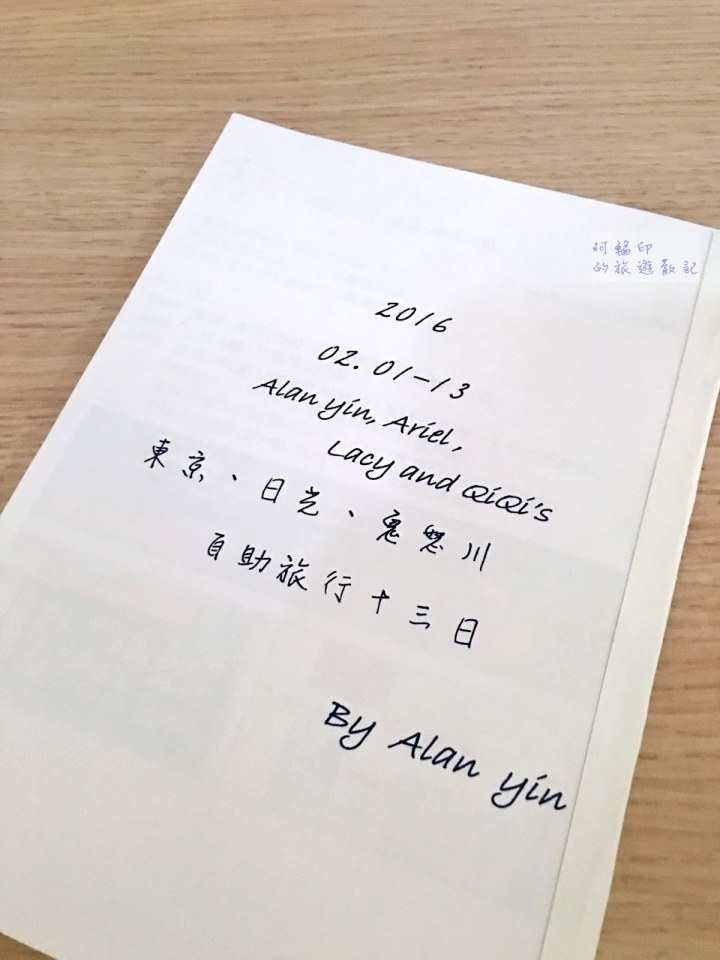 阿輪印
的旅遊散記
2016
02.01-13
Alan yin, Ariel,
Lacy and QiQi's
東京、日光、鬼怒川
自助旅行十三日
By Alan yin